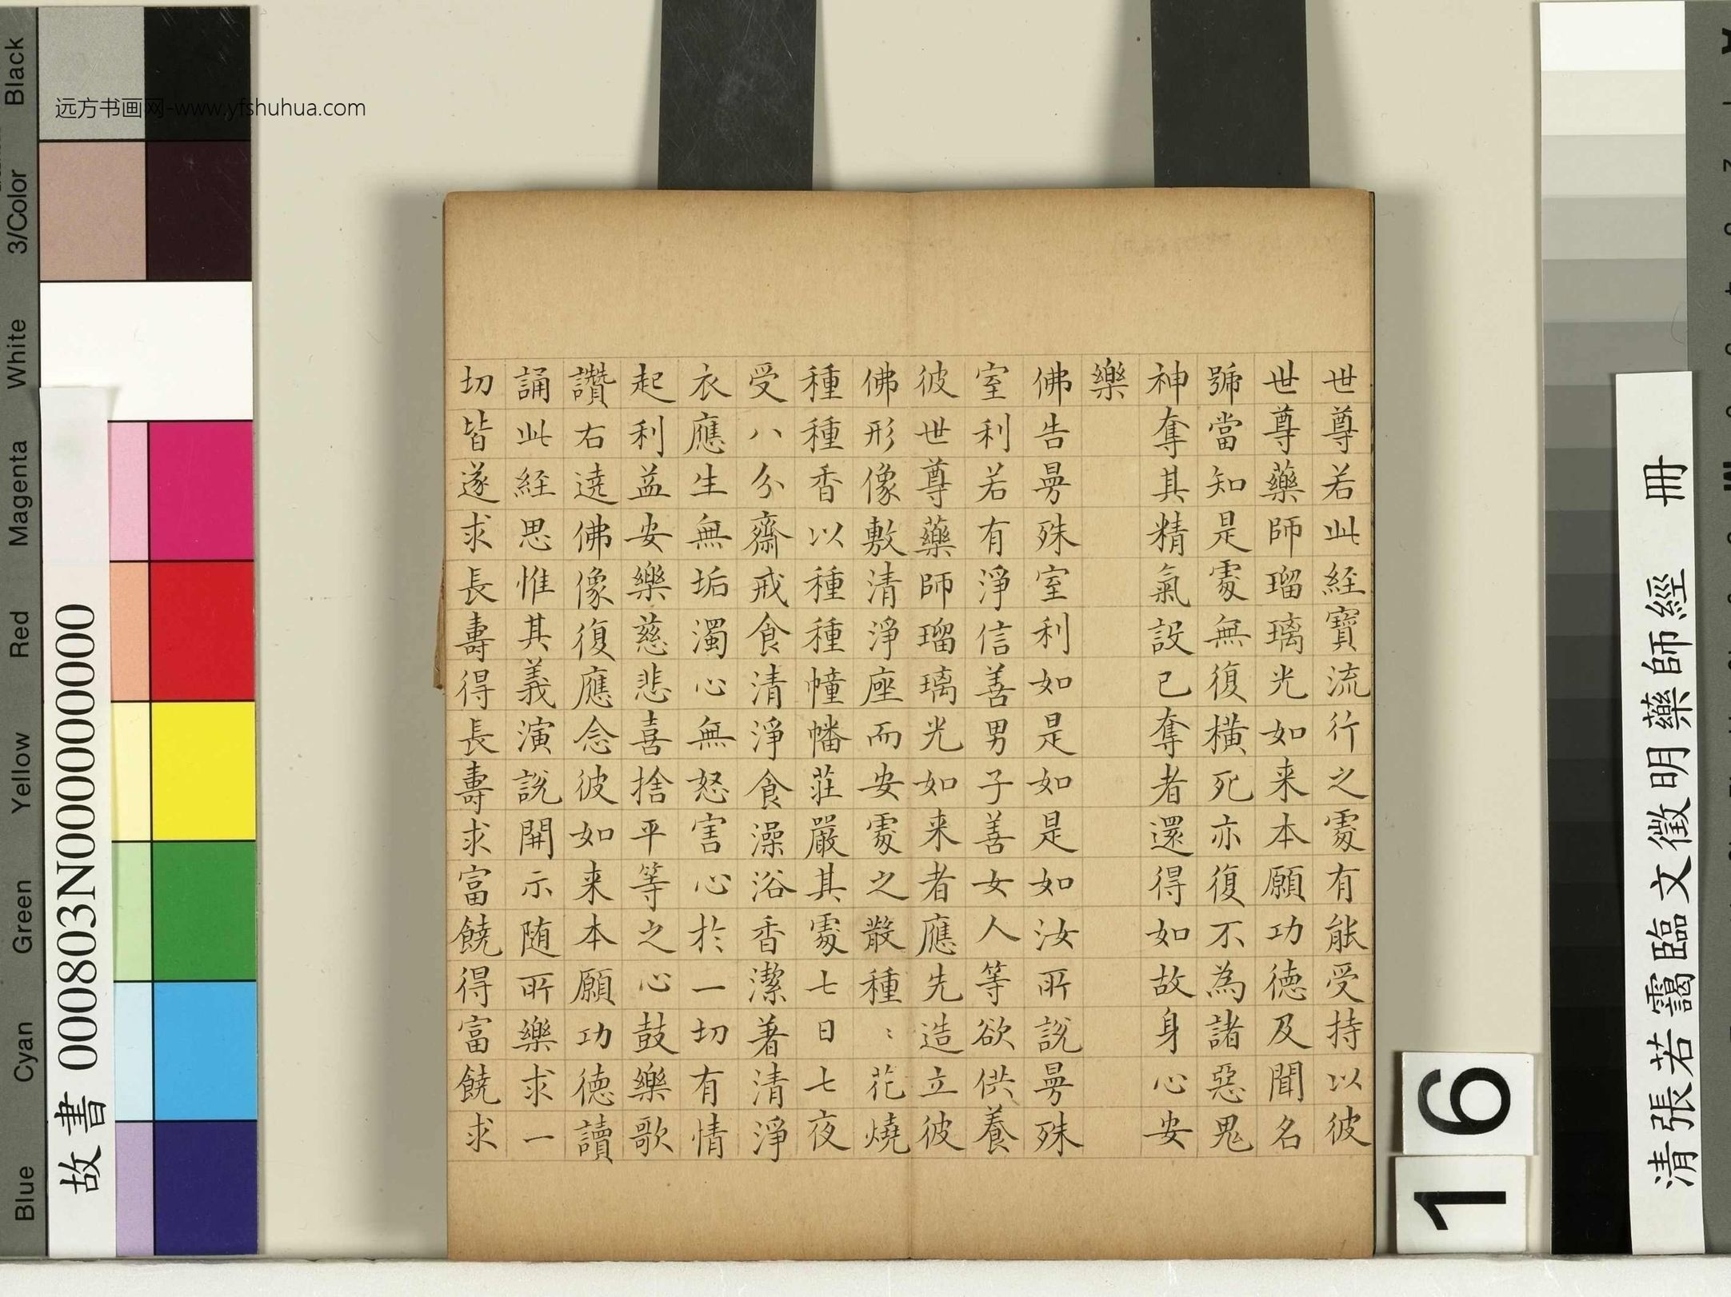 世尊若此經寶流行之處有能受持以彼
世尊藥師瑠璃光如来本願功德及聞名
號當知是處無復橫死亦復不為諸惡鬼
神奪其精氣設已奪者還得如故身心安
樂
佛告曼殊室利如是如是如汝所說曼殊
室利若有淨信善男子善女人等欲供養
彼世尊藥師瑠璃光如来者應先造立彼
佛形像敷清淨座而安處之散種〻花燒
種種香以種種幢幡莊嚴其處七日七夜
受八分齋戒食清淨食澡浴香潔著清淨
衣應生無垢濁心無怒害心於一切有情
起利益安樂慈悲喜捨平等之心鼓樂歌
讚右遶佛像復應念彼如来本願功德讀
誦此經思惟其義演說開示随所樂求一
切皆遂求長壽得長壽求富饒得富饒求
清張若靄臨文徵明藥師經 冊
16
故書 000803N000000000
远方书画网-www.yfshuhua.com
Black
3/Color
White
Magenta
Red
Yellow
Green
Cyan
Blue